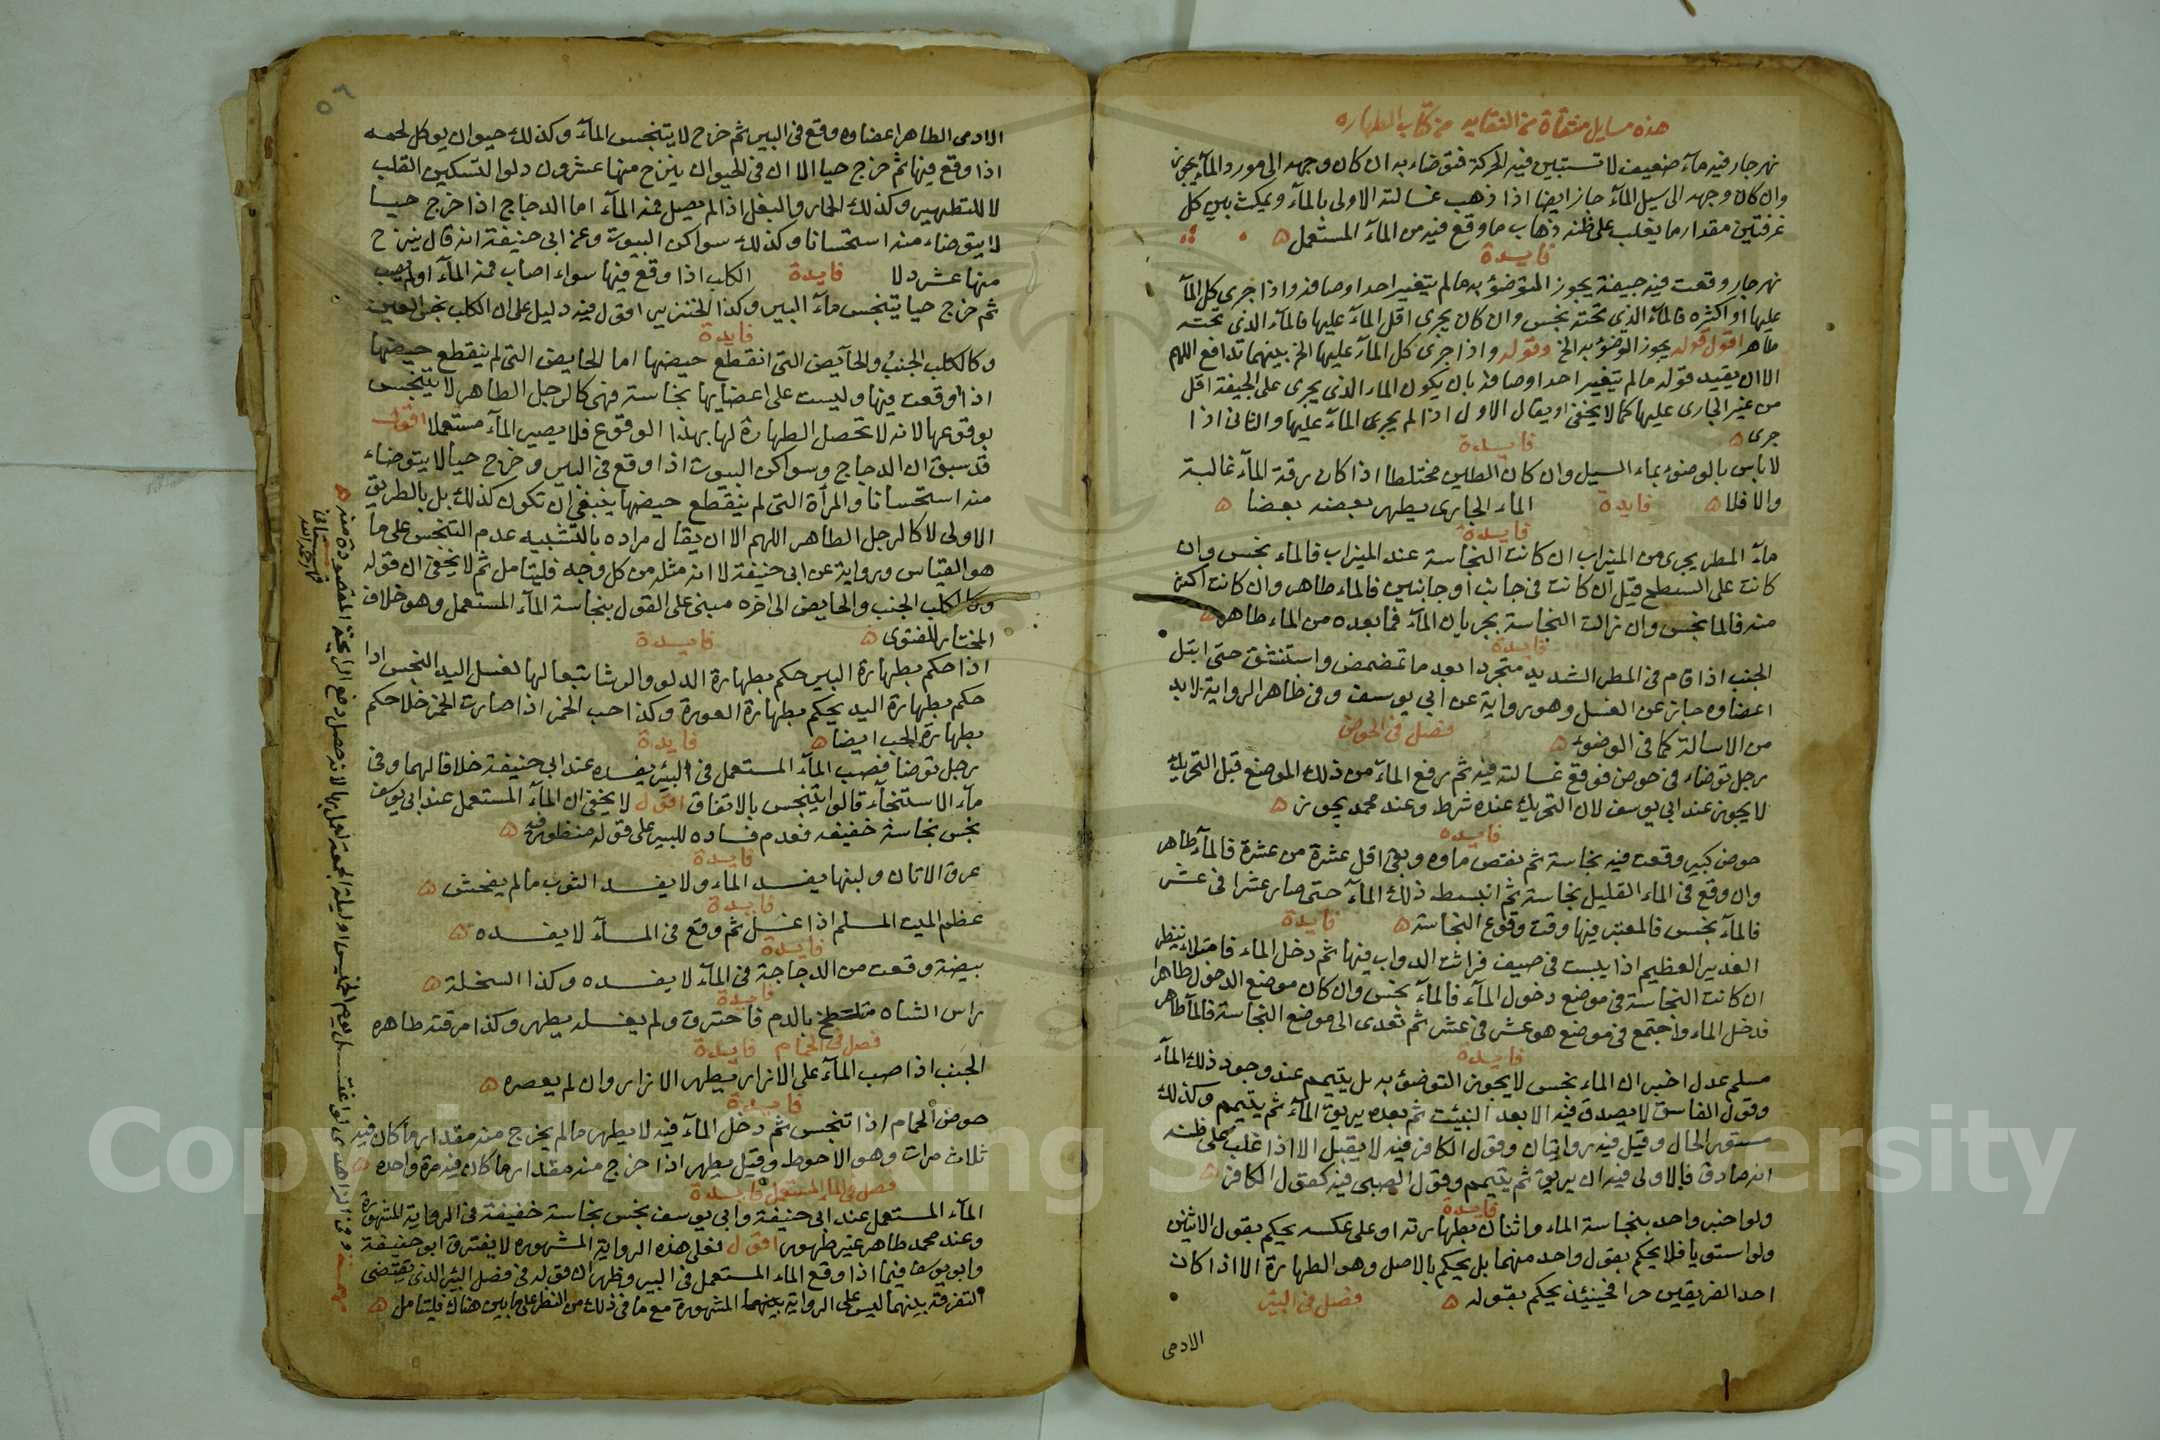 هذه مسايل منتقاة من النقايه من كتاب الطهاره
نهر جار فيه مآء ضعيف لا تستبين فيه الحركة فتوضاء به ان كان وجهه الى مورد المآء يجوز
وان كان وجهه الى سيل المآء جاز ايضا اذا ذهب غسالته الاولى بالمآء ويمكث بين كل
غرفتين مقدار ما يغلب على ظنه ذهاب ما وقع فيه من المآء المستعمل ه
فايدة
نهر جار وقعت فيه جيفة يجوز التوضؤ به ما لم يتغير احد اوصافه واذا جرى كل المآء
عليها او اكثره فالمآء الذى تحته نجس وان كان يجرى اقل المآء عليها فالمآء الذى تحته
طاهر اقول قوله يجوز الوضوء به الخ وقوله واذا جرى كل المآء عليها الخ بينهما تدافع اللهم
الا ان يقيد قوله ما لم يتغير احد اوصافه بان يكون الماء الذى يجرى على الجيفة اقل
من غير الجارى عليها كما لا يخفى او يقال الاول اذا لم يجرى المآء عليها والثانى اذا
جرى ه فايدة
لا باس بالوضوء بماء السيل وان كان الطين مختلطا اذا كان رقة المآء غالبة
والا فلا ه فايدة الماء الجارى يطهر بعضه بعضا ه
فايدة
مآء المطر يجرى من الميزاب ان كانت النجاسة عند الميزاب فالماء نجس وان
كانت على السطح قيل ان كانت فى جانب او جانبين فالماء طاهر وان كانت اكثر
منه فالما نجس وان زالت النجاسة بجريان المآء فما بعده من الماء طاهر ه
فايدة
الجنب اذا قام فى المطر الشديد متجردا بعد ما تمضمض واستنشق حتى ابتل
اعضاوه جاز عن الغسل وهو رواية عن ابى يوسف وفى ظاهر الرواية لابد
من الاسالة كما فى الوضوء ه فصل فى الحوض
رجل توضاء فى حوض فوقع غسالته فيه ثم رفع المآء من ذلك الموضع قبل التحريك
لا يجوز عند ابى يوسف لان التحريك عنده شرط وعند محمد يجوز ه
فايده
حوض كبير وقعت فيه نجاسة ثم نقص ماوه وبقى اقل عشرة من عشرة فالمآء طاهر
وان وقع فى الماء القليل نجاسة ثم انبسط ذلك المآء حتى صار عشرا فى عشر
فالمآء نجس فالمعتبر فيها وقت وقوع النجاسة ه فايدة
الغدير العظيم اذا يبست فى صيف فراثت الدواب فيها ثم دخل الماء فامتلاء ينظر
ان كانت النجاسة فى موضع دخول المآء فالمآء نجس وان كان موضع الدخول طاهرا
فدخل الماء واجتمع فى موضع هو عشر فى عشر ثم تعدى الى موضع النجاسة فالمآ طاهر
فايده
مسلم عدل اخبر ان الماء نجس لا يجوز التوضؤ به بل يتيمم عند وجود ذلك المآء
وقول الفاسق لا يصدق فيه الا بعد التثبت ثم بعده يريق المآء ثم يتيمم وكذلك
مستور الحال وقيل فيه روايتان وقول الكافر فيه لا يقبل الا اذا غلب على ظنه
انه صادق فالاولى فيه ان يريق ثم يتيمم وقول الصبى فيه كقول الكافر ه
فايدة
ولو اخبر واحد بنجاسة الماء واثنان بطهارته او على عكسه يحكم بقول الاثنين
ولو استويا فلا يحكم بقول واحد منهما بل يحكم بالاصل وهو الطهارة الا اذا كان
احد الفريقين حرا فحينئذ يحكم بقوله ه فصل فى البئر
الادمى
٥٦
الادمى الطاهر اعضاوه وقع فى البير ثم خرج لا يتنجس المآء وكذلك حيوان يوكل لحمه
اذا وقع فيها ثم خرج حيا الا ان فى الحيوان ينزح منها عشرون دلوا لتسكين القلب
لا للتطهير وكذلك الحمار والبغل اذا لم يصل فمه المآء اما الدجاج اذا خرج حيا
لا يتوضاء منه استحسانا وكذلك سواكن البيوت وعن ابى حنيفة انه قال ينزح
منها عشر دلا فايدة الكلب اذا وقع فيها سواء اصاب فمه المآء اولم يصب
ثم خرج حيا يتنجس مآء البير وكذا الخنزير اقول فيه دليل على ان الكلب نجس العين
فايدة
وكالكلب الجنب والحآيض التى انقطع حيضها اما الحايض التى لم ينقطع حيضها
اذا وقعت فيها وليست على اعضايها نجاسة فهى كالرجل الطاهر لا يتنجس
بوقوعها لانه لا تحصل الطهارة لها بهذا الوقوع فلا يصير المآء مستعملا اقول
قد سبق ان الدجاج وسواكن البيوت اذا وقع فى البير وخرج حيا لا يتوضاء
منه استحسانا والمرأة التى لم ينقطع حيضها ينبغى ان تكون كذلك بل بالطريق
الاولى لا كالرجل الطاهر اللهم الا ان يقال مراده بالتشبيه عدم التنجس على ما
هو القياس ورواية عن ابى حنيفة لا انه مثله من كل وجه فليتامل ثم لا يخفى ان قوله
وكالكلب الجنب والحايض الى اخره مبنى على القول بنجاسة المآء المستعمل وهو خلاف
المختار للفتوى ه فايدة
اذا حكم بطهارة البير حكم بطهارة الدلو والرشا تبعا لها لغسل اليد النجس اذا
حكم بطهارة اليد يحكم بطهارة العروة وكذا حب الخمر اذا صارت الخمر خلا حكم
بطهارة الحب ايضا ه فايدة
رجل توضا فصب المآء المستعمل فى البئر يفسده عند ابى حنيفة خلافا لهما وفى
مآء الاستنجآء قالوا يتنجس بالاتفاق اقول لا يخفى ان المآء المستعمل عند ابى يوسف
نجس نجاسة خفيفه فعدم فساده للبير على قوله منظور فيه ه
فايدة
عرق الاتان ولبنها يفسد الماء ولا يفسد الثوب ما لم يفحش ه
فايدة
عظم الميت المسلم اذا غسل ثم وقع فى المآء لا يفسده ه
فايدة
بيضة وقعت من الدجاجة فى المآء لا يفسده وكذا السخلة ه
فايدة
راس الشاه متلطخ بالدم فاحترق ولم يغسله يطهر وكذا مرقته طاهره
فصل فى الحمام فايدة
الجنب اذا صب المآء على الازار يطهر الازار وان لم يعصره ه
فايدة
حوض الحمام اذا تنجس ثم دخل المآء فيه لا يطهر ما لم يخرج منه مقدار ما كان فيه
ثلاث مرات وهو الاحوط وقيل يطهر اذا خرج منه مقدار ما كان فيه مرة واحده ه
فصل فى الماء المستعمل فايدة
المآء المستعمل عند ابى حنيفة وابى يوسف نجس نجاسة خفيفة فى الرواية المشهورة
وعند محمد طاهر غير طهور اقول فعلى هذه الرواية المشهوره لا يفترق ابو حنيفة
وابو يوسف فيما اذا وقع الماء المستعمل فى البير وظهر ان قوله فى فصل البئر الذى يقتضى
التفرقة بينهما ليس على الرواية بينهما المشهورة مع ما فى ذلك من النظر على ما بين هناك فليتامل ه
مهمة وفى الزاهدى لو اغتسل يوم الخميس او ليلة الجمعة تعمل بها لانه حصل دفع الرايحة المقصودة منه ه
قهستانى
رحمه الله
Copyright © King Saud University
1957